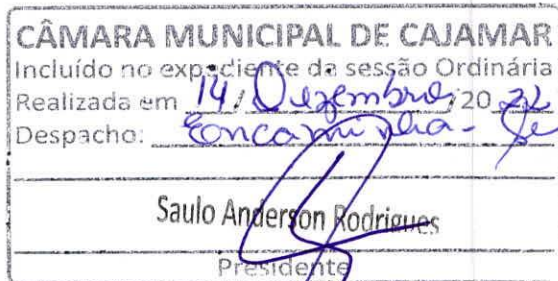 CÂMARA MUNICIPAL DE CAJAMAR
Incluído no expediente da sessão Ordinária
Realizada em 14 / Dezembro / 20 22
Despacho: Encaminha-se
Saulo Anderson Rodrigues
Presidente